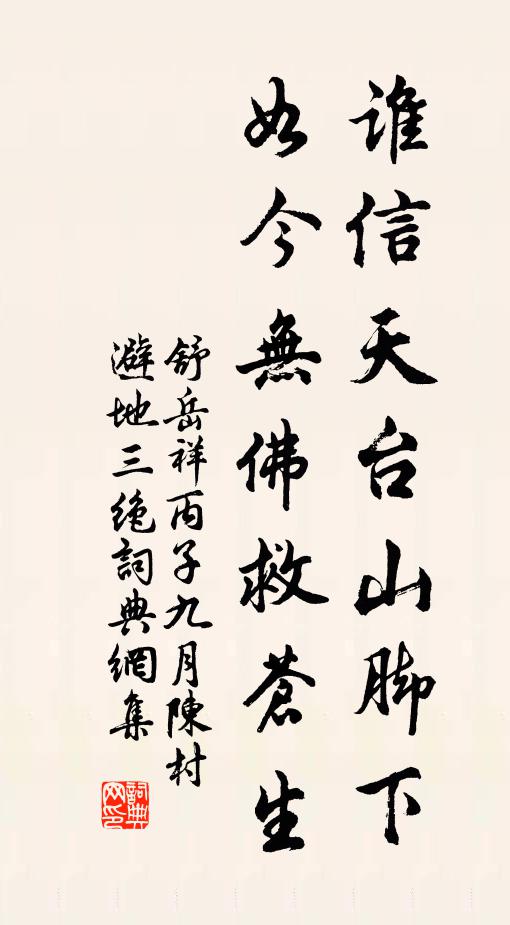 誰信天台山脚下
如今無佛救蒼生
舒岳祥丙子九月陳村
避地三絶詞典網集
詞典网印